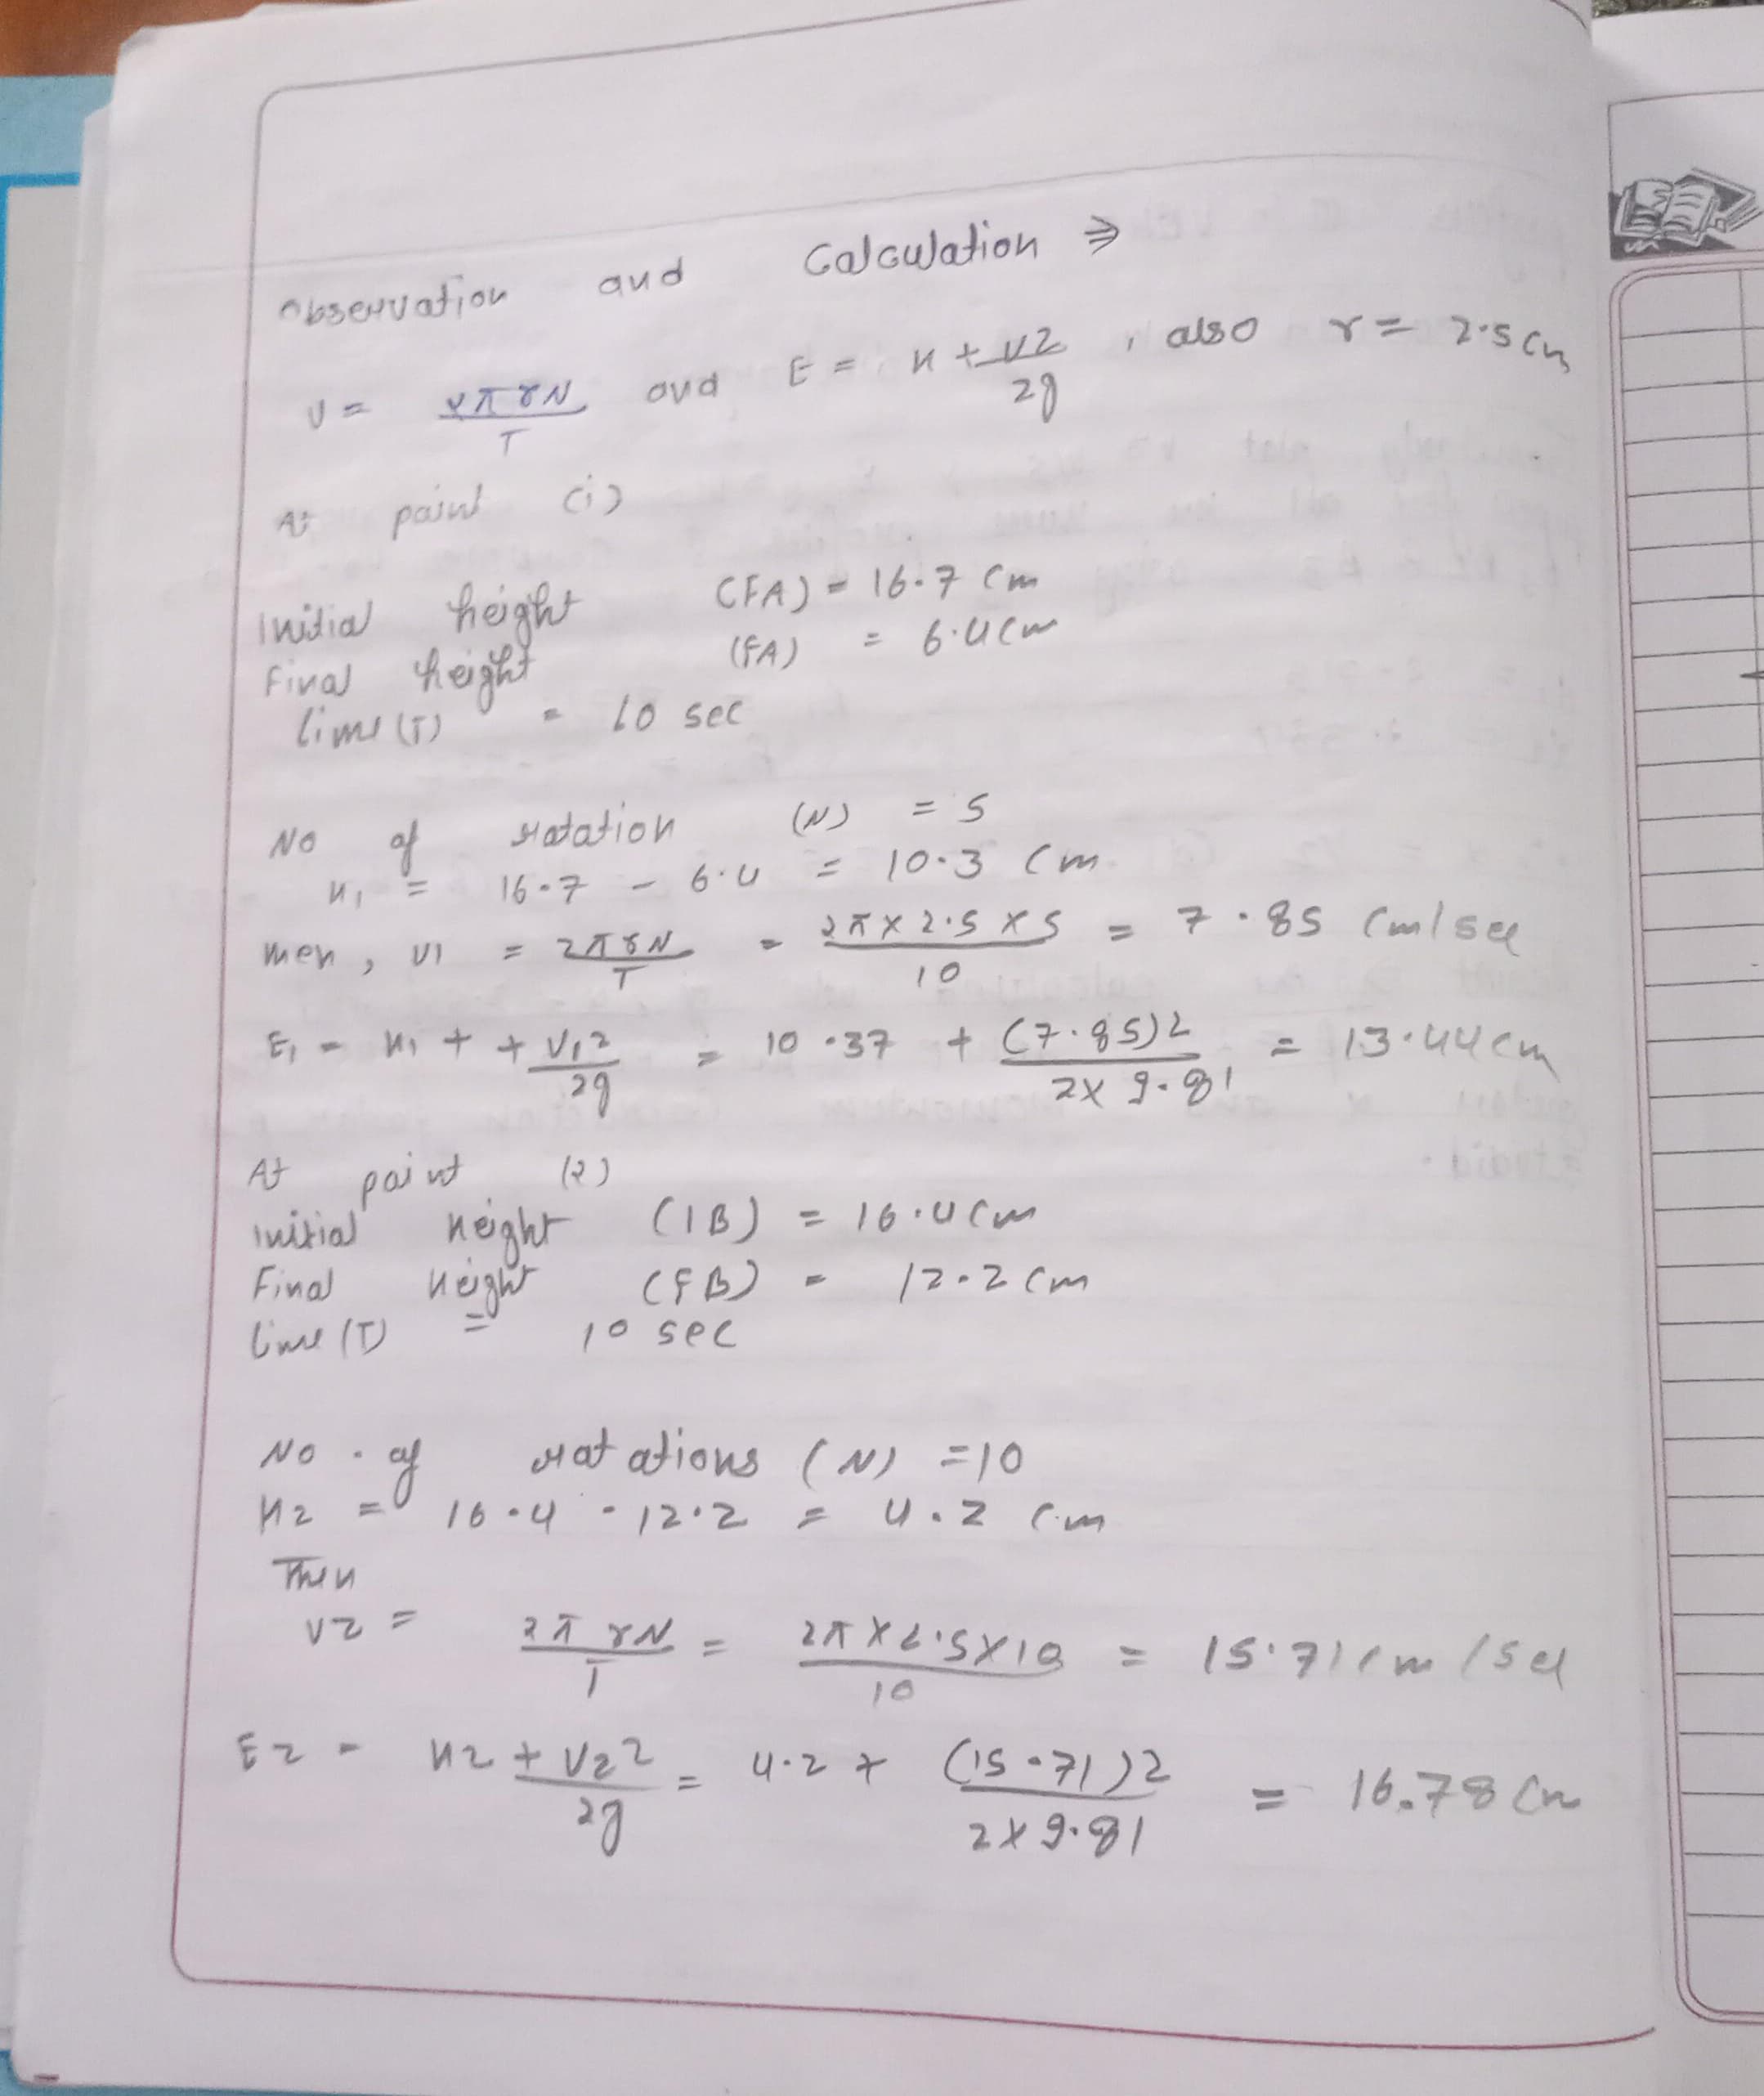 Observation and Calculation ⇒
V = 2πrN/T and E = H + V2/2g , also r = 2.5 cm
At point (i)
Initial height (FA) = 16.7 cm
Final height (FA) = 6.4 cm
time (T) = 10 sec
No of rotation (N) = 5
H1 = 16.7 - 6.4 = 10.3 cm
then, V1 = 2πrN/T = 2π×2.5×5/10 = 7.85 cm/sec
E1 = H1 + + V1 2/2g = 10.37 + (7.85)2/2×9.81 = 13.44 cm
At point (2)
initial Height (IB) = 16.4 cm
Final Height (FB) = 12.2 cm
time (T) = 10 sec
No. of rotations (N) = 10
H2 = 16.4 - 12.2 = 4.2 cm
Then
V2 = 2πrN/T = 2π×2.5×10/10 = 15.71 cm/sec
E2 = H2 + V2 2/2g = 4.2 + (15.71)2/2×9.81 = 16.78 cm